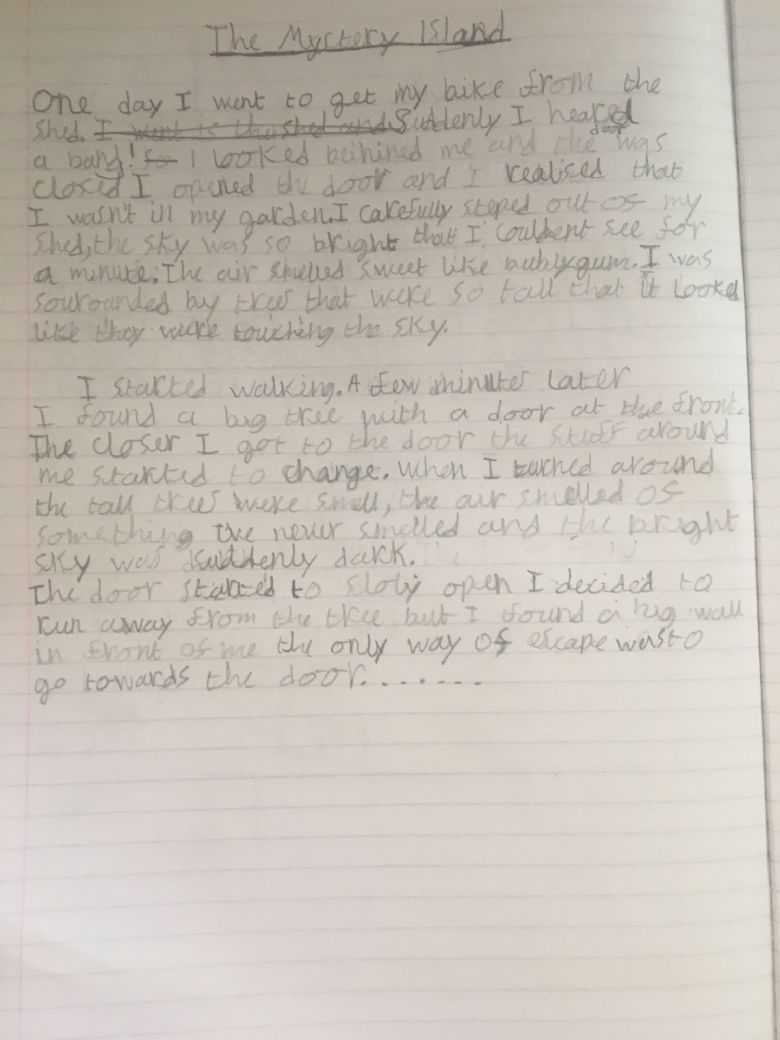 The Mystery Island
One day I went to get my bike from the
shed. I went to the shed and Suddenly I heared
a bang! So I looked beihined me and the door was
closed I opened the door and I realised that
I wasn't in my garden. I carefully steped out of my
shed, the sky was so bright that I couldent see for
a minute. The air smelled sweet like bublygum. I was
sourounded by trees that were so tall that it looked
like they were touching the sky.
I started walking. A few minutes later
I found a big tree with a door at the front.
The closer I got to the door the stuff around
me started to change. When I turned around
the tall trees were smell, the air smelled of
something I've never smelled and the bright
sky was suddenly dark.
The door started to slowy open I decided to
run away from the tree but I found a big wall
in front of me the only way of escape was to
go towards the door.......